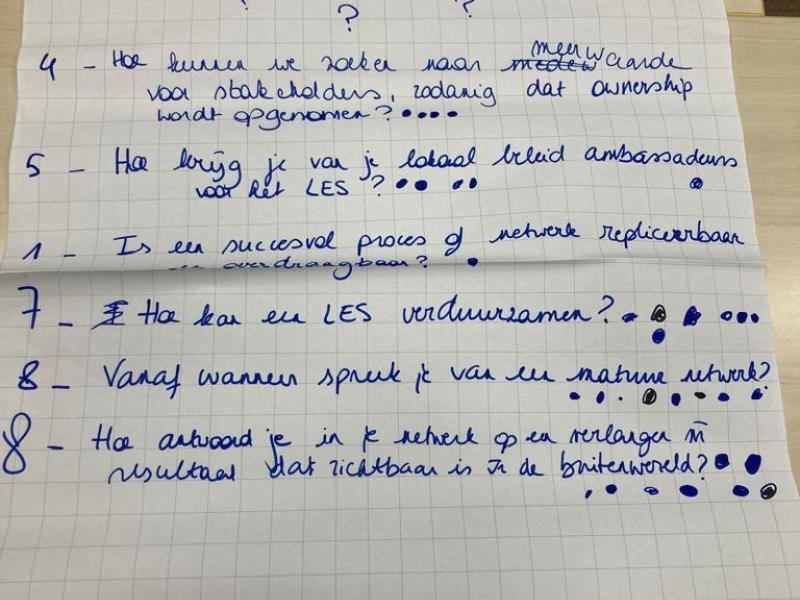 ? ?
4 - Hoe kunnen we zoeken naar meerwaarde
voor stakeholders, zodanig dat ownership
wordt opgenomen?
5 - Hoe krijg je van je lokaal beleid ambassadeurs
voor het LES?
1 - Is een succesvol proces of netwerk repliceerbaar
en overdraagbaar?
7 - Hoe kan een LES verduurzamen?
8 - Vanaf wanneer spreek je van een matuur netwerk?
8 - Hoe antwoord je in je netwerk op een verlangen
resultaat dat zichtbaar is in de buitenwereld?